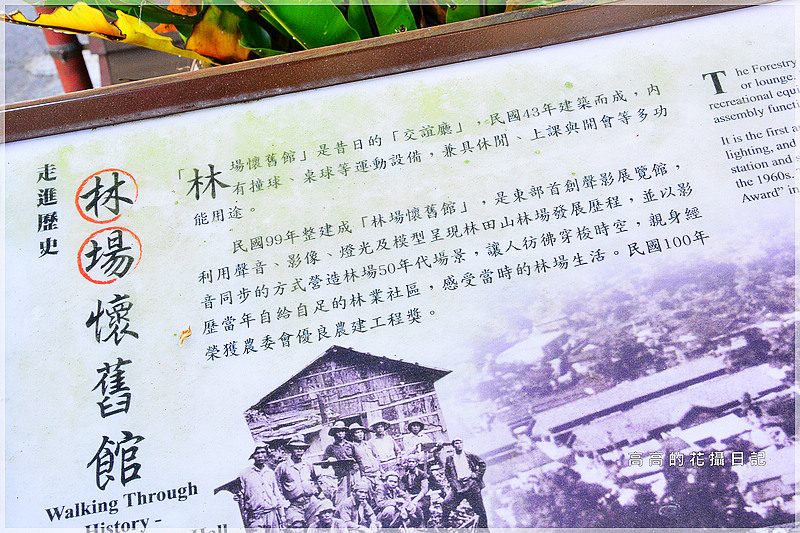 走進歷史
林場懷舊館
Walking Through
History -
Hall
「林場懷舊館」是昔日的「交誼廳」，民國43年建築而成，內
有撞球、桌球等運動設備，兼具休閒、上課與開會等多功
能用途。
民國99年整建成「林場懷舊館」，是東部首創聲影展覽館，
利用聲音、影像、燈光及模型呈現林田山林場發展歷程，並以影
音同步的方式營造林場50年代場景，讓人彷彿穿梭時空，親身經
歷當年自給自足的林業社區，感受當時的林場生活。民國100年
榮獲農委會優良農建工程獎。
The Forestry
or lounge.
recreational equ
assembly funct
It is the first a
lighting, and
station and s
the 1960s.
Award" in
高高的花攝日記